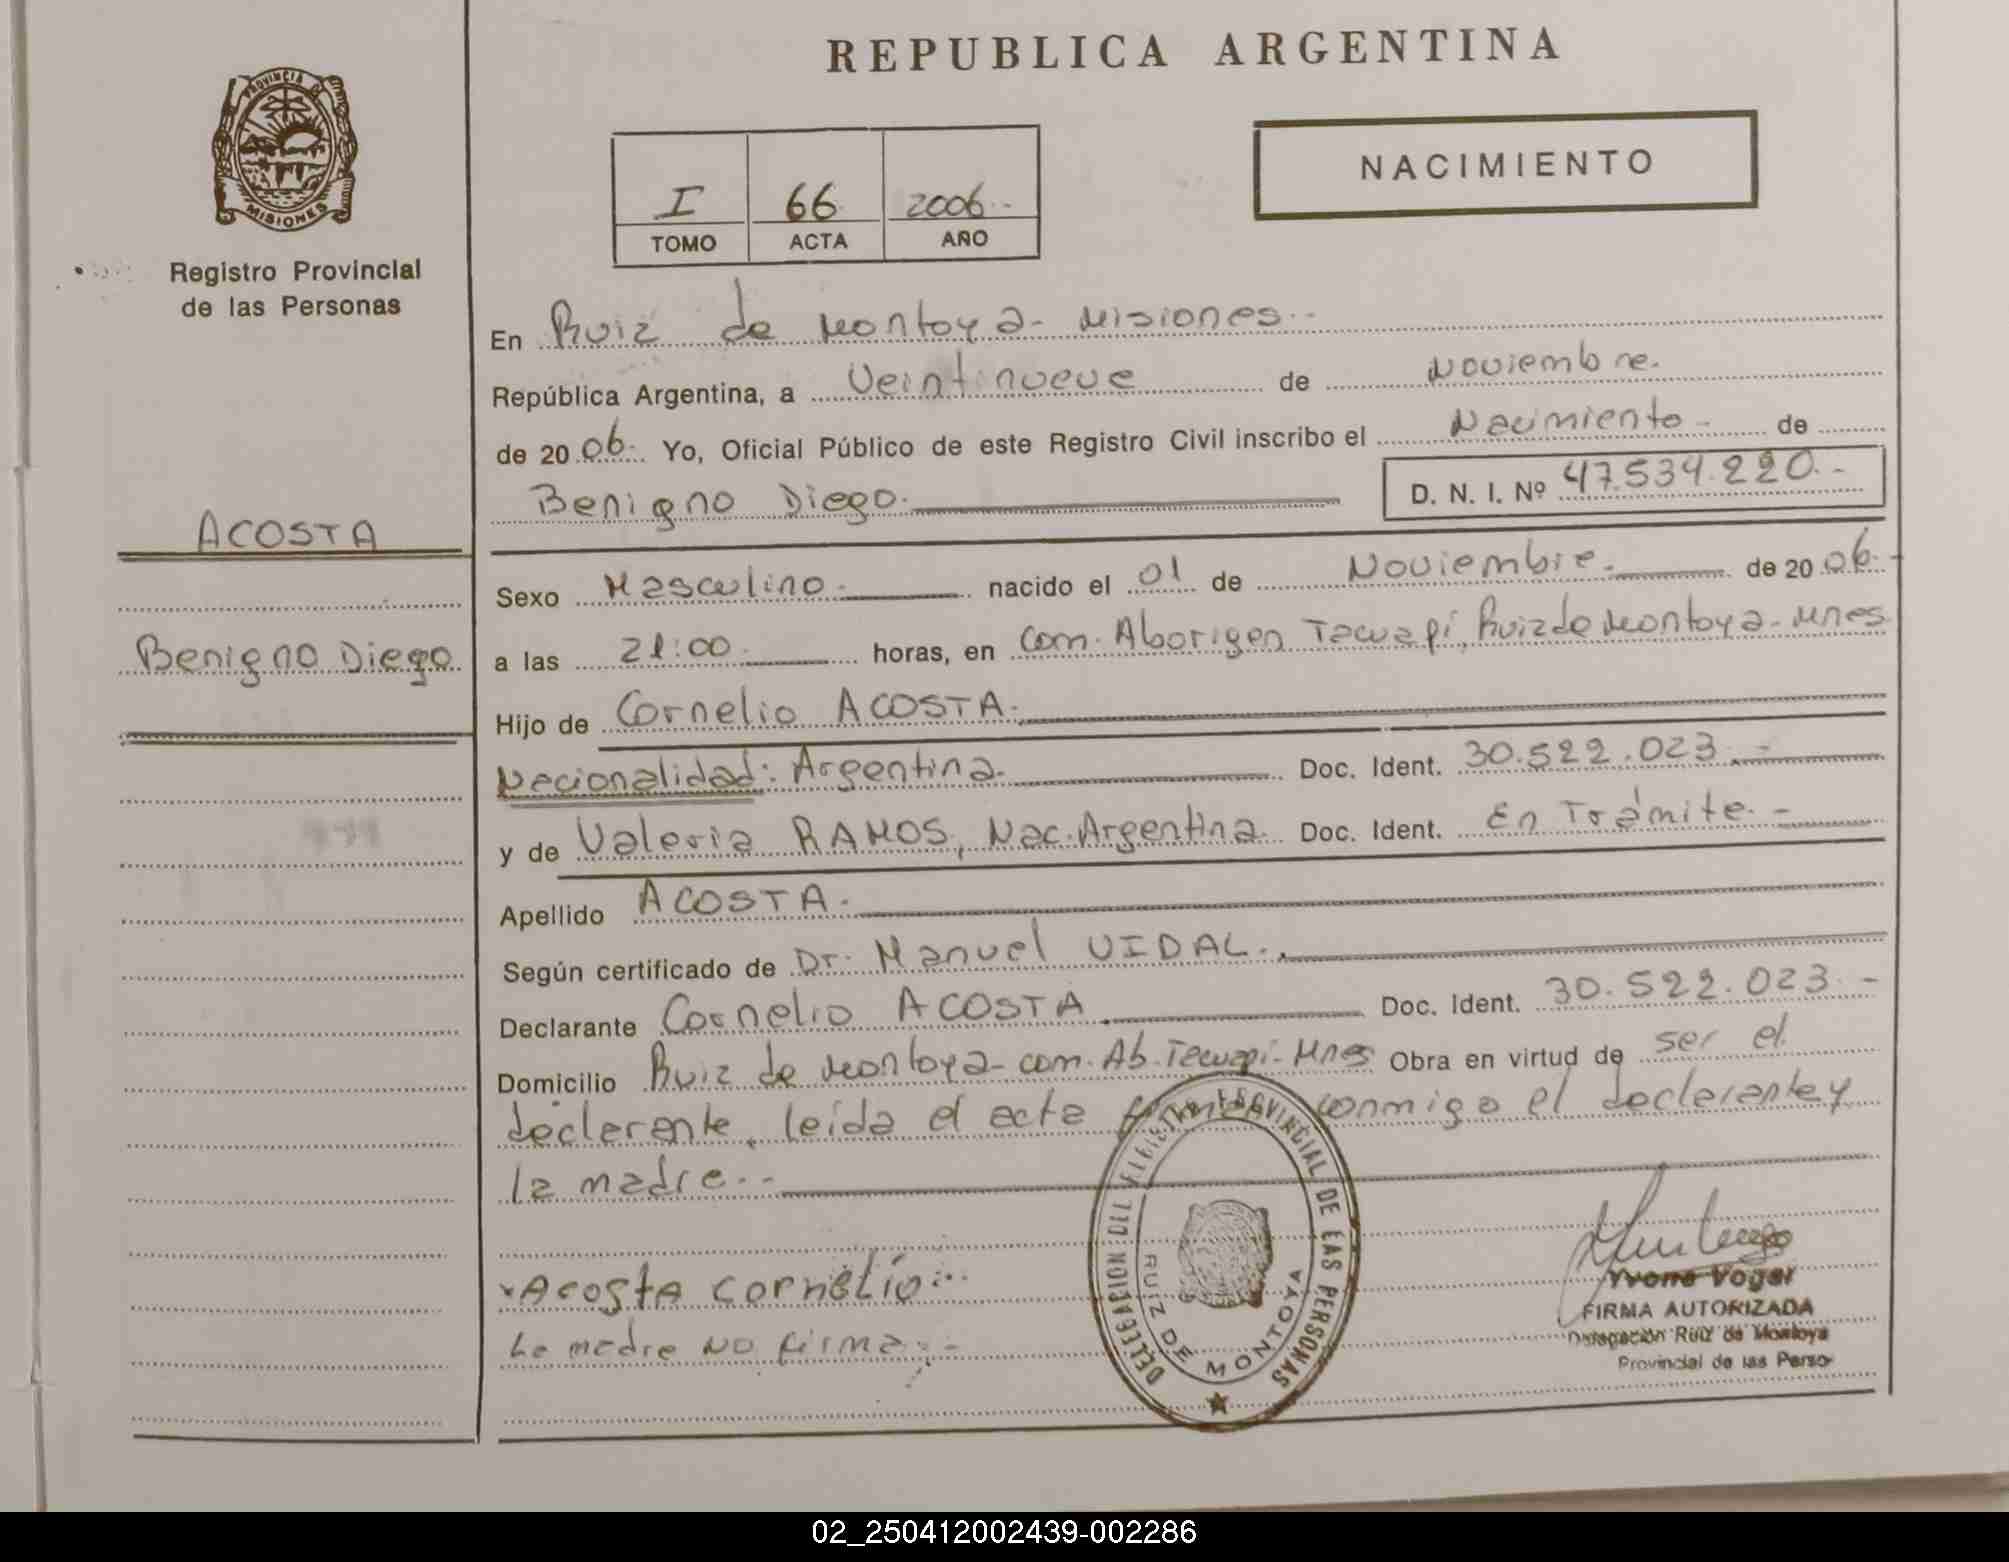 REPUBLICA ARGENTINA
PROVINCIA DE
MISIONES
Registro Provincial
de las Personas
NACIMIENTO
I 66 2006
TOMO ACTA AÑO
En Ruiz de Montoya - Misiones.-
República Argentina, a Veintinueve de Noviembre.
de 2006. Yo, Oficial Público de este Registro Civil inscribo el Nacimiento - de
Benigno Diego. D. N. I. Nº 47.534.220.-
ACOSTA
Benigno Diego
Sexo Masculino. nacido el 01 de Noviembre. de 2006.-
a las 21:00 horas, en Com. Aborigen Tacuapí, Ruiz de Montoya - Mnes
Hijo de Cornelio ACOSTA.
Nacionalidad: Argentina. Doc. Ident. 30.522.023.-
y de Valeria RAMOS, Nac. Argentina. Doc. Ident. En Trámite.-
Apellido ACOSTA.
Según certificado de Dr. Manuel VIDAL.
Declarante Cornelio ACOSTA. Doc. Ident. 30.522.023.-
Domicilio Ruiz de Montoya - com. Ab. Tacuapí - Mnes Obra en virtud de ser el
declarante, leída el acta conmigo el declarante y
la madre.-
Acosta Cornelio
La madre no firma.-
DELEGACION DEL REGISTRO PROVINCIAL DE LAS PERSONAS
RUIZ DE MONTOYA
Yvone Vogel
FIRMA AUTORIZADA
Delegación Ruiz de Montoya
Provincial de las Perso
02_250412002439-002286